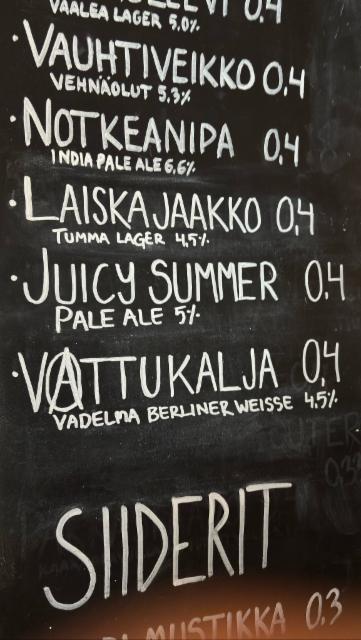 0.4
VAALEA LAGER 5.0%
· VAUHTIVEIKKO 0,4
VEHNÄOLUT 5.3%
· NOTKEANIPA 0,4
INDIA PALE ALE 6,6%
· LAISKAJAAKKO 0,4
TUMMA LAGER 4,5%
· JUICY SUMMER 0,4
PALE ALE 5%
· VATTUKALJA 0,4
VADELMA BERLINER WEISSE 4.5%
SIIDERIT
MUSTIKKA 0.3